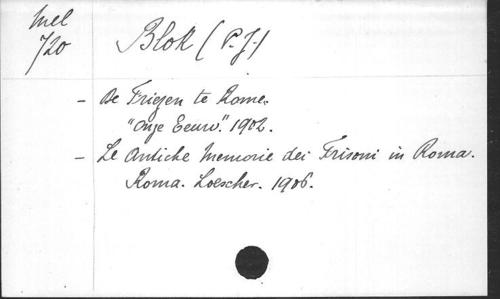 Mel
720
Blok (P.J.)
- De Friezen te Rome.
"Onze Eeuw". 1902.
- Le Antiche Memorie dei Frisoni in Roma.
Roma. Loescher. 1906.